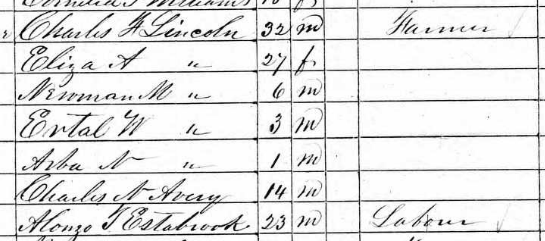 Cornelia S Williams 10 f
Charles F Lincoln 32 m Farmer
Eliza A " 27 f
Newman M " 6 m
Ertal W " 3 m
Arba N " 1 m
Charles N Avery 14 m
Alonzo T Estabrook 23 m Labour